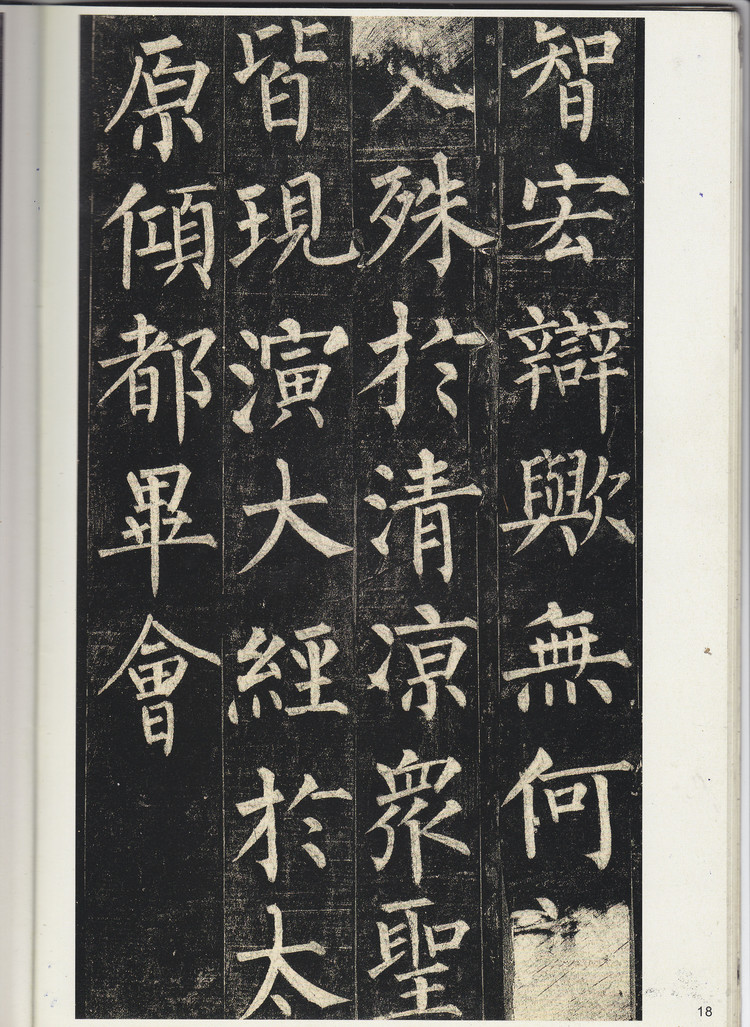 智宏辯歟無何
入殊於清涼眾聖
皆現演大經於太
原傾都畢會
18